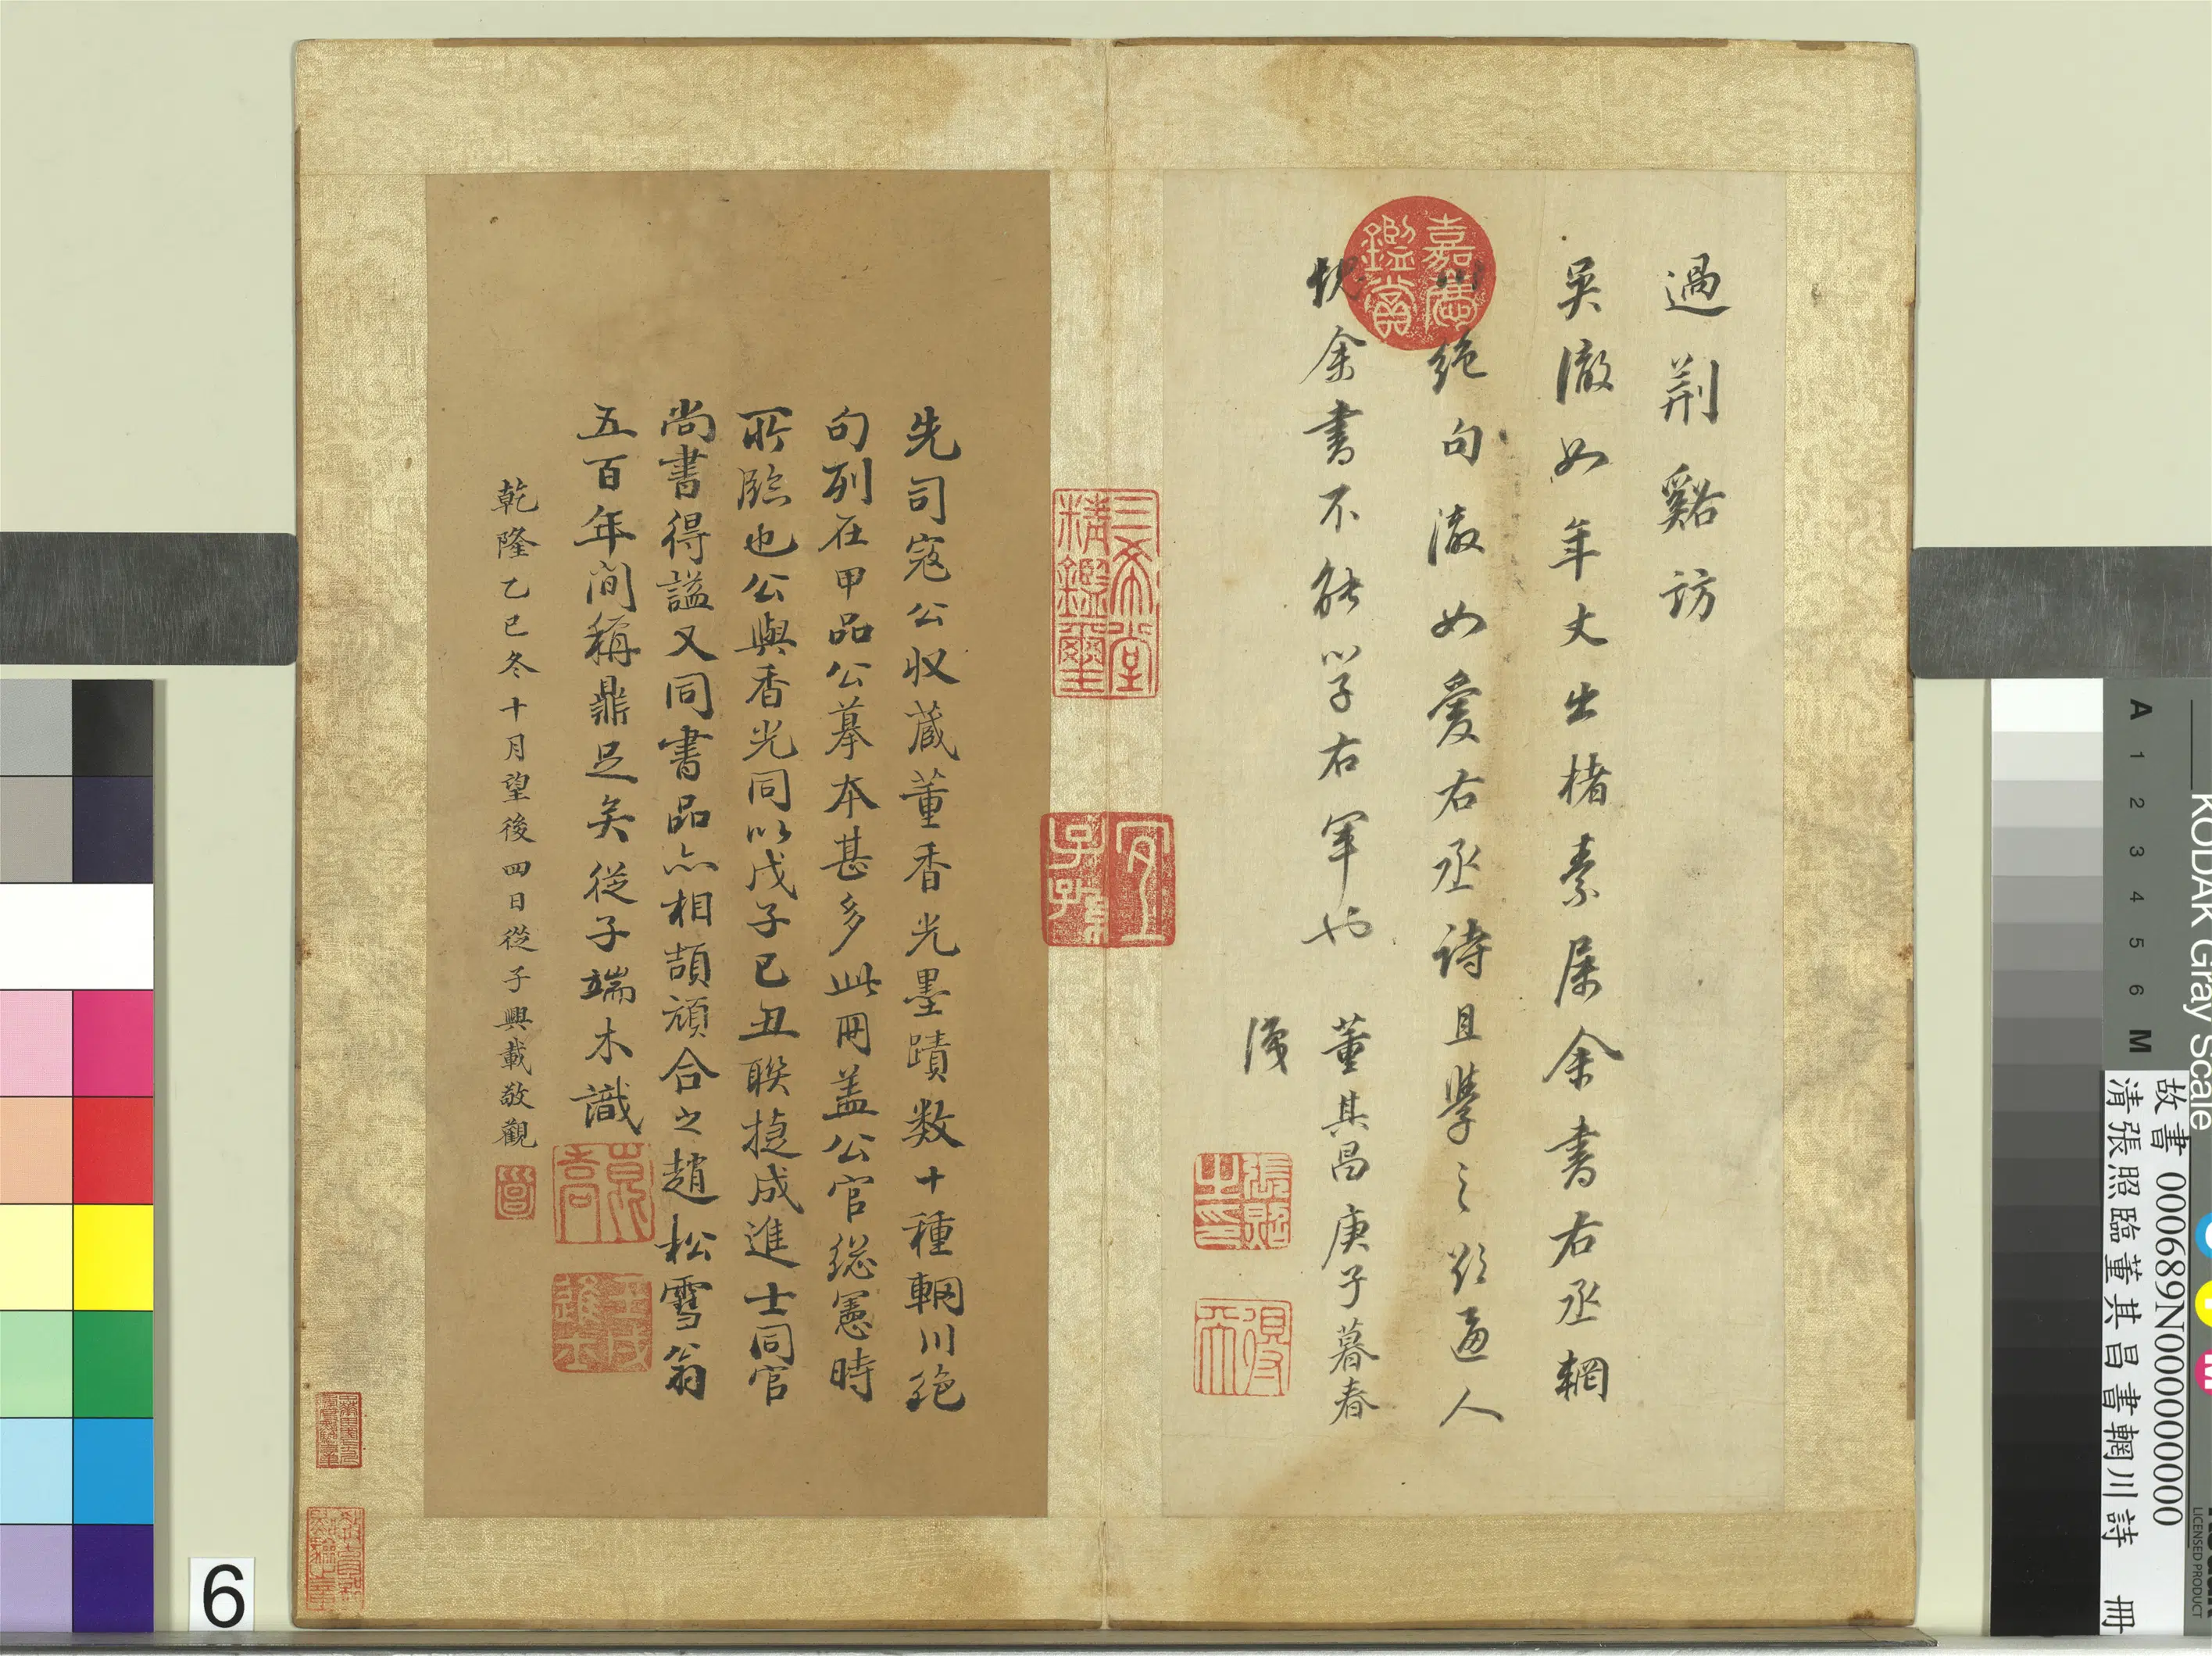 過荆谿訪
吳澈如年丈出楮素屬余書右丞輞
川絶句澈如愛右丞詩且學之欲逼人
怳余書不能以學右軍也
董其昌庚子暮春
識
嘉慶鑑賞
張照之印
得天
三希堂精鑑璽
宜子孫
先司寇公収蔵董香光墨蹟数十種輞川絶
句列在甲品公摹本甚多此冊盖公官総憲時
所臨也公與香光同以戊子己丑聯捷成進士同官
尚書得諡又同書品亦相頡頏合之趙松雪翁
五百年間稱鼎足矣從子端木識
乾隆乙巳冬十月望後四日從子興載敬觀
6
KODAK Gray Scale
A 1 2 3 4 5 6 M
LICENSED PRODUCT
故書 000689N000000000
清張照臨董其昌書輞川詩 冊